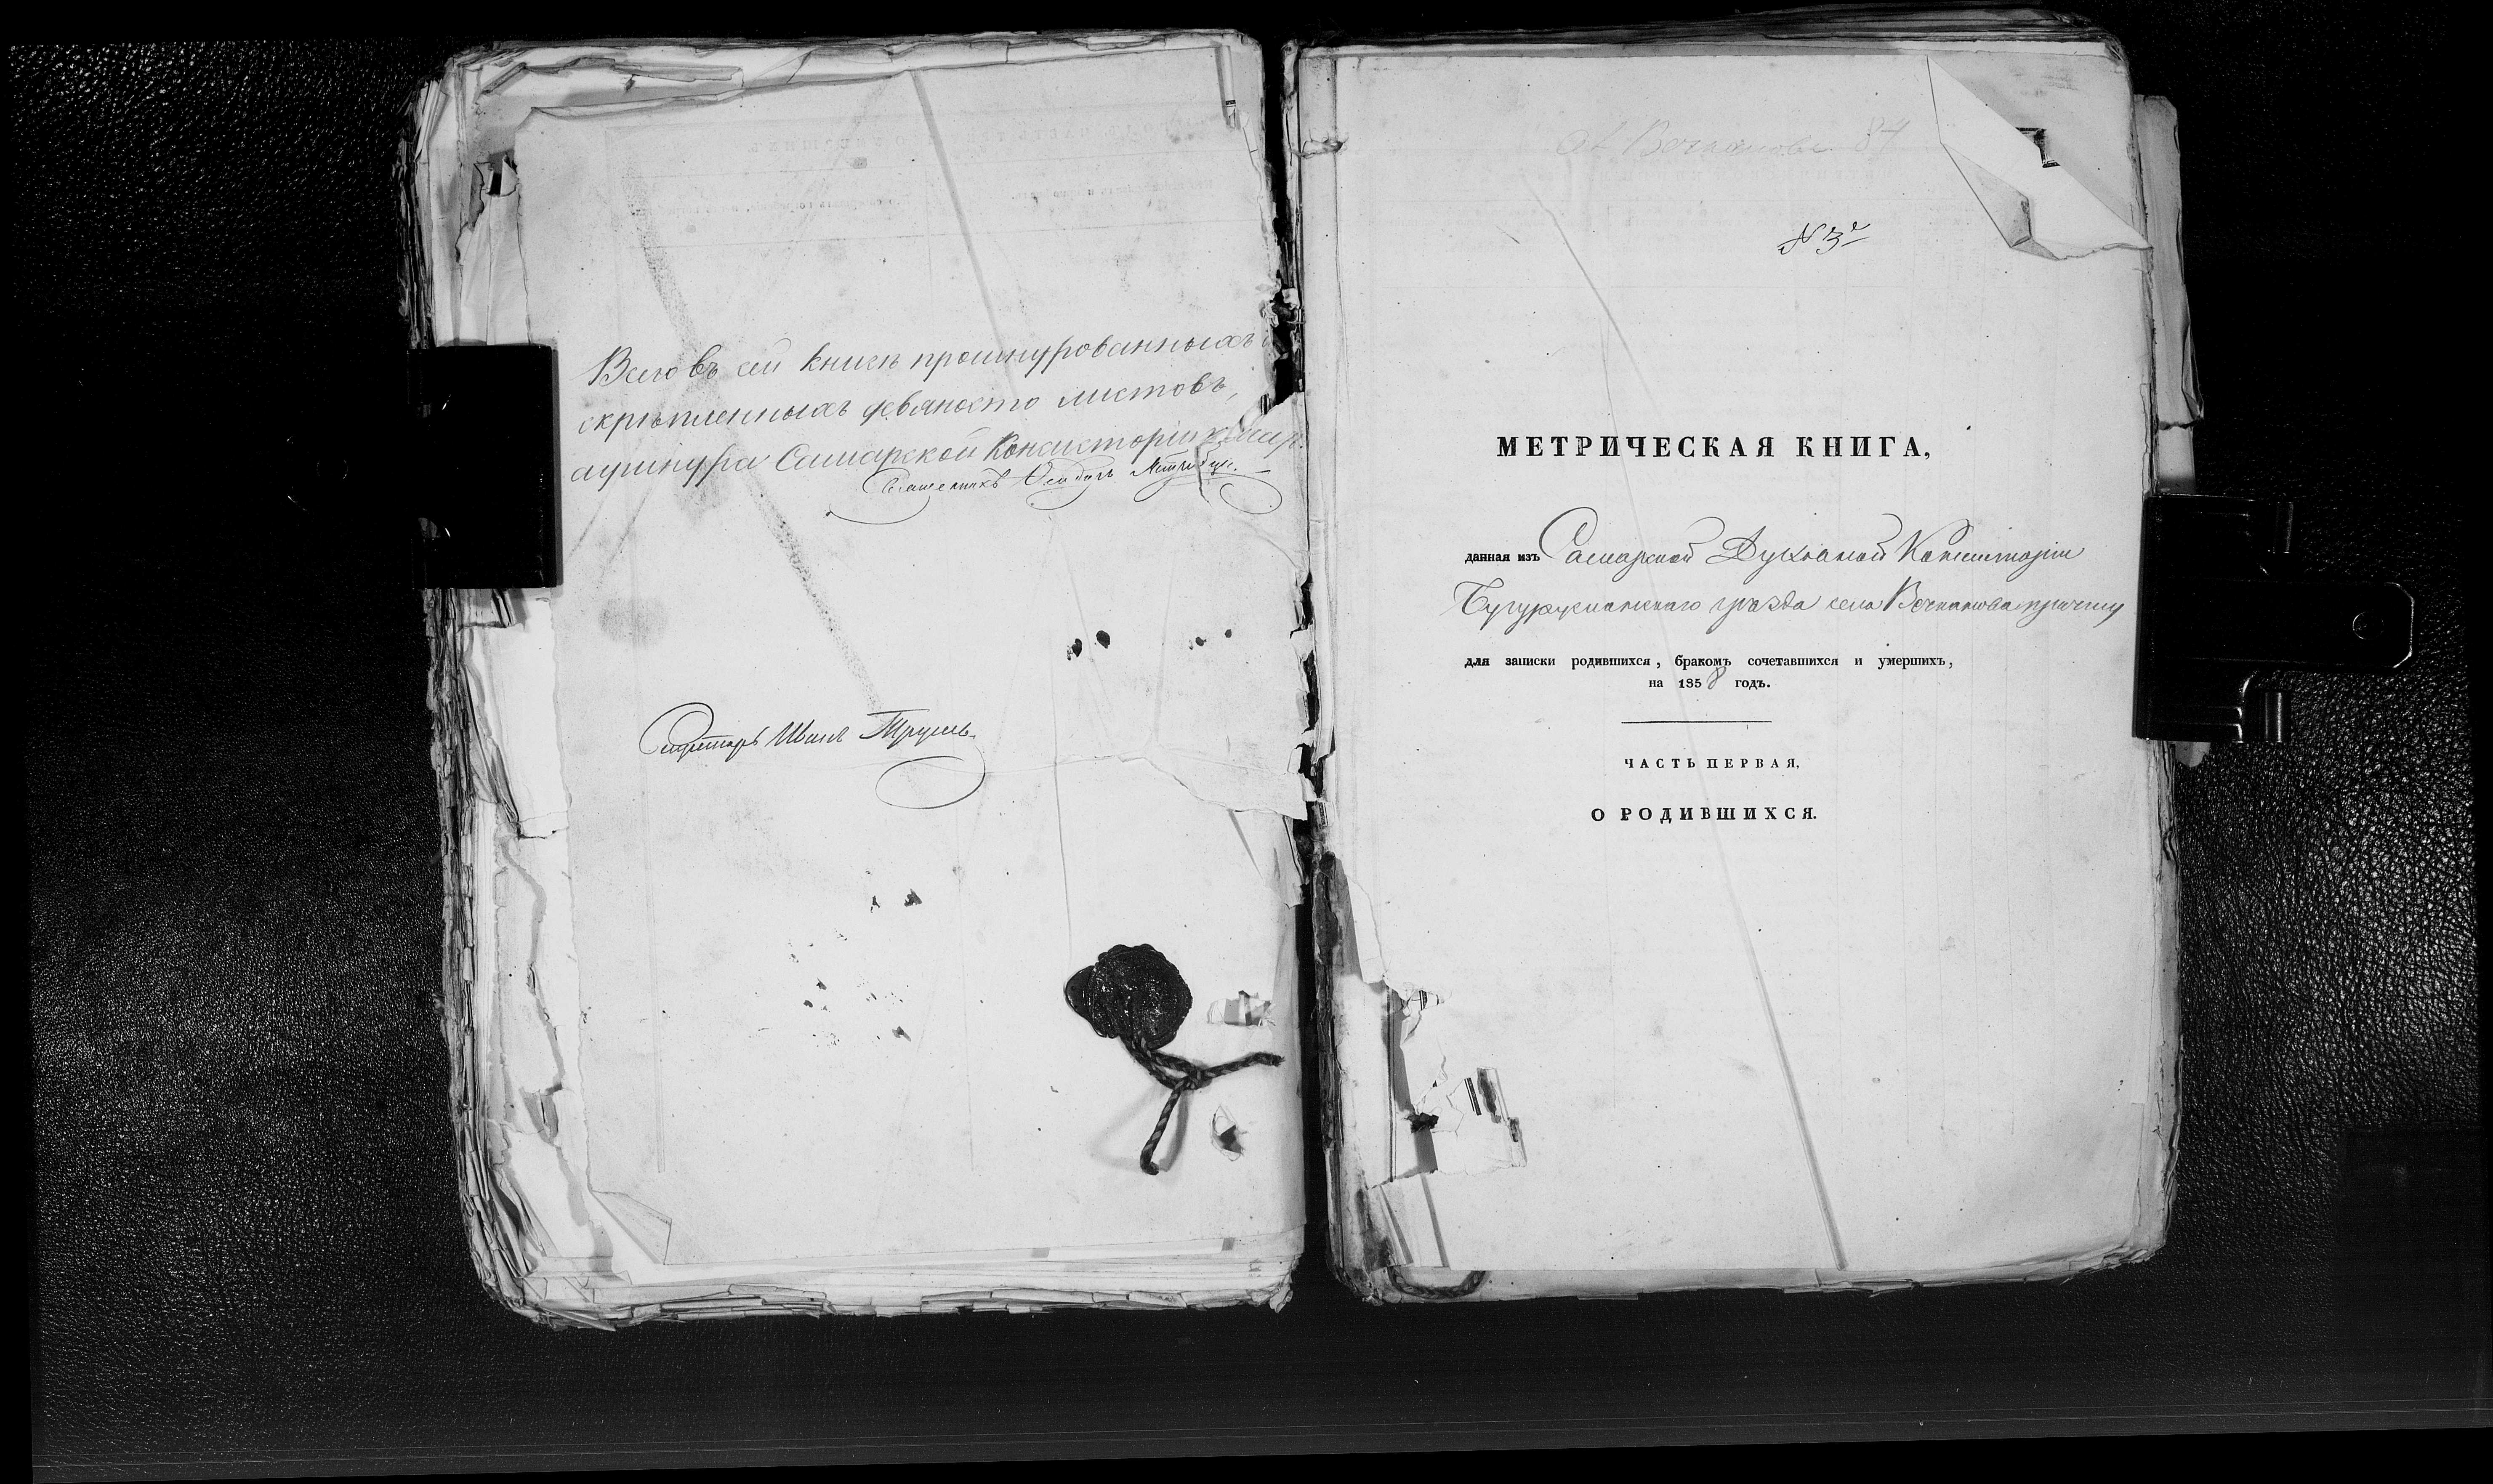 Всего въ сей книгѣ прошнурованныхъ и
скрѣпленныхъ девяносто листовъ,
Самарской Консисторіи
Священникъ
Секретарь Иванъ
с. Вечканово 84
№ 3й
МЕТРИЧЕСКАЯ КНИГА,
данная изъ Самарской Духовной Консисторіи
Бугурусланскаго уѣзда села Вечканова причту
для записки родившихся, бракомъ сочетавшихся и умершихъ,
на 1858 годъ.
ЧАСТЬ ПЕРВАЯ,
О РОДИВШИХСЯ.